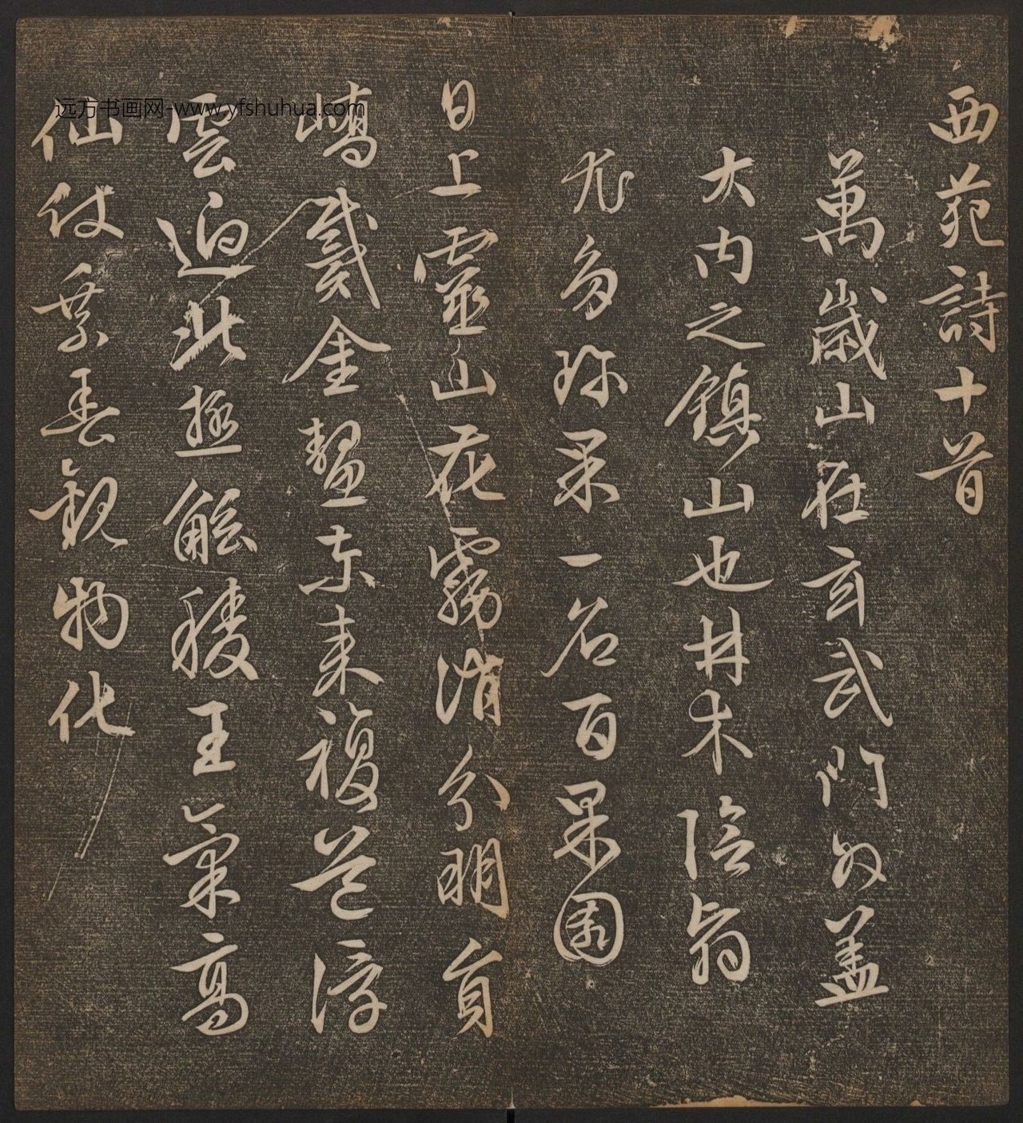 西苑詩十首
萬歲山在玄武門外蓋
大内之鎮山也其木陰翁
尤多珍果一名百果園
日上靈山花霧消分明員
嶠戴金鼇東來複道浮
雲迥北極觚稜王氣高
仙仗乘春觀物化
远方书画网-www.yfshuhua.com